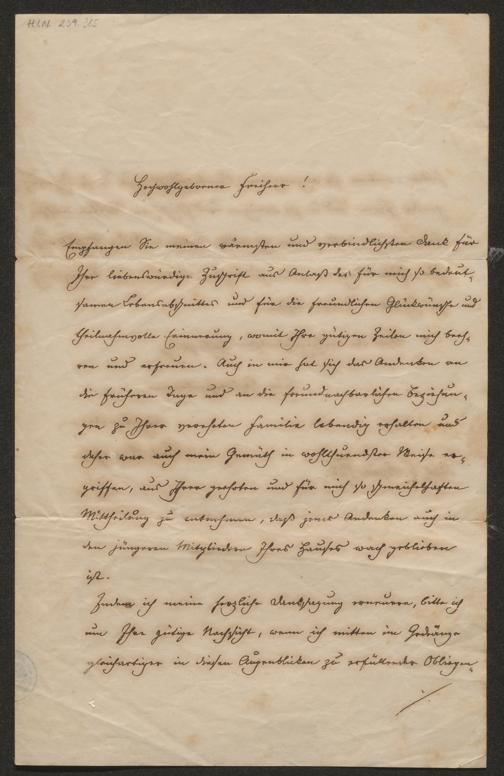 Hochwohlgeborner Freiherr !
Empfangen Sie meinen wärmsten und verbindlichsten Dank für
Ihre liebenswürdige Zuschrift aus Anlaß des für mich so bedeut-
samen Lebensabschnittes und für die freundlichen Glückwünsche und
theilnahmsvolle Erinnerung, womit Ihre gütigen Zeilen mich beeh-
ren und erfreuen. Auch in mir hat sich das Andenken an
die früheren Tage und an die freundnachbarlichen Beziehun-
gen zu Ihrer verehrten Familie lebendig erhalten und
daher war auch mein Gemüth in wohlthuendster Weise er-
griffen, aus Ihrer geehrten und für mich so schmeichelhaften
Mittheilung zu entnehmen, daß jenes Andenken auch in
den jüngeren Mitgliedern Ihres Hauses wach geblieben
ist.
Indem ich meine herzliche Danksagung erneuere, bitte ich
um Ihre gütige Nachsicht, wenn ich mitten im Gedränge
gleichartiger in diesen Augenblicken zu erfüllender Obliegen-